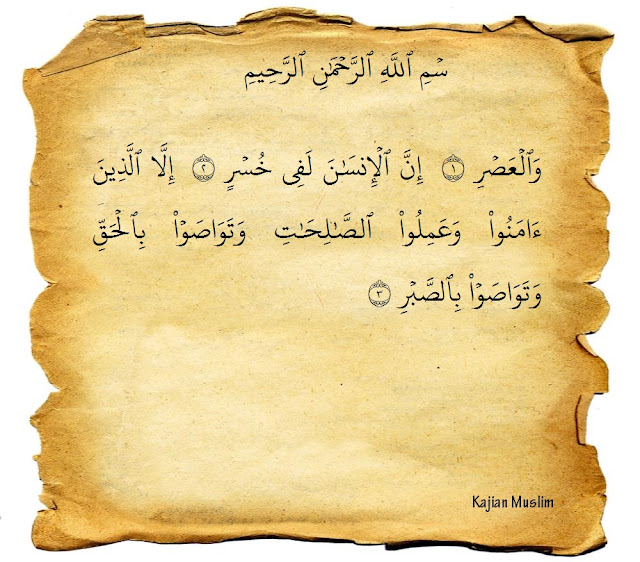 سۡمِ ٱللَّهِ ٱلرَّحۡمَٰنِ ٱلرَّحِيمِ
وَٱلۡعَصۡرِ ١ إِنَّ ٱلۡإِنسَٰنَ لَفِى خُسۡرٍ ٢ إِلَّا ٱلَّذِينَ
ءَامَنُواْ وَعَمِلُواْ ٱلصَّٰلِحَٰتِ وَتَوَاصَوۡاْ بِٱلۡحَقِّ
وَتَوَاصَوۡاْ بِٱلصَّبۡرِ ٣
Kajian Muslim